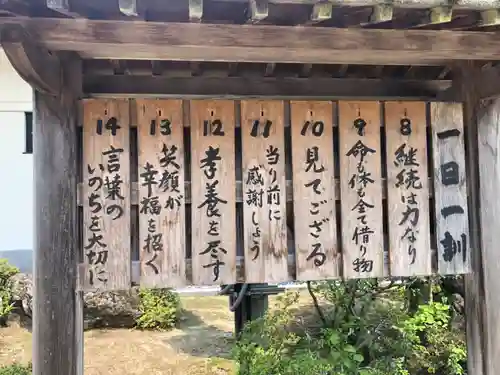 一日一訓
8 継続は力なり
9 命も体も全て借り物
10 見てござる
11 当り前に感謝しょう
12 孝養を尽す
13 笑顔が幸福を招く
14 言葉のいのちを大切に